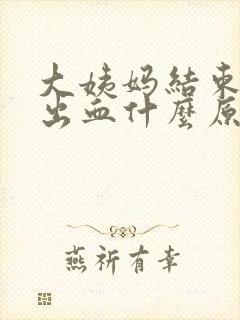 大姨妈結束
出血什麼原
燕祈有幸